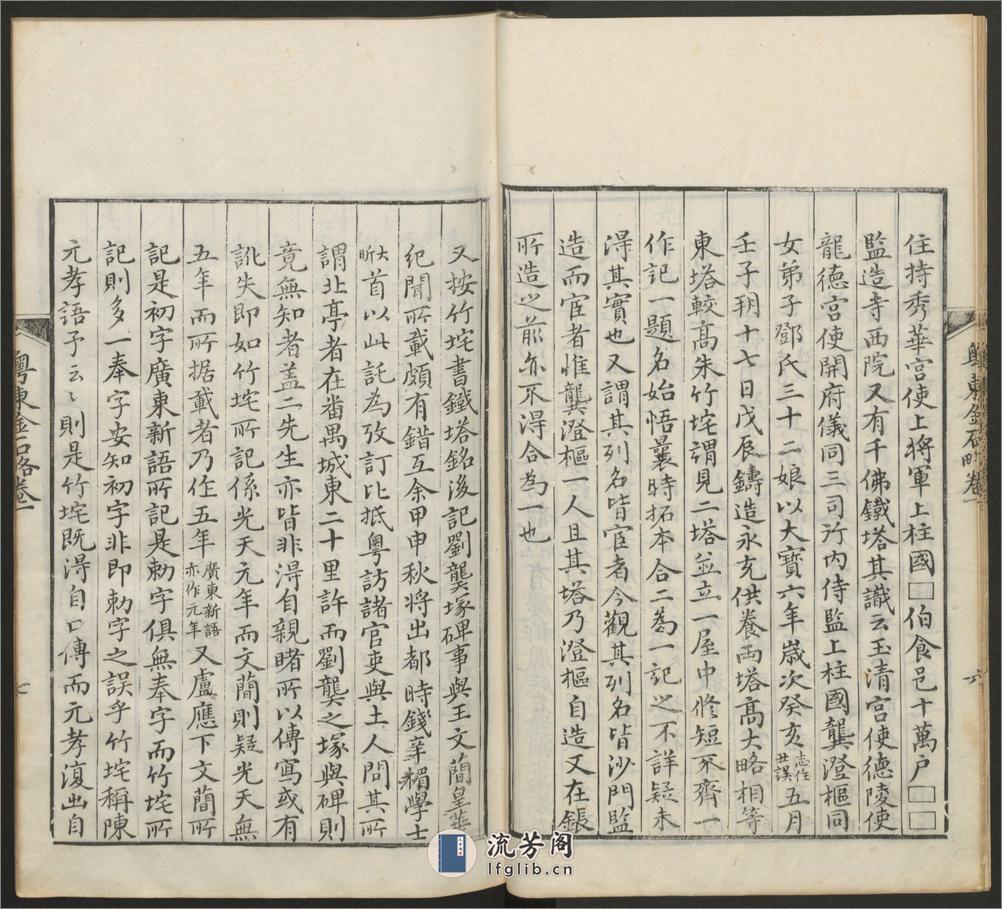 住持秀華宮使上將軍上柱國□伯食邑十萬户□□
監造寺西院又有千佛鐵塔其識云玉清宮使德陵使
龍德宮使開府儀同三司行内侍監上柱國龔澄樞同
女弟子鄧氏三十二娘以大寶六年歲次癸亥志作丑誤五月
壬子朔十七日戊辰鑄造永充供養兩塔高大略相等
東塔較高朱竹垞謂見二塔並立一屋中修短不齊一
作記一題名始悟曩時拓本合二為一記之不詳疑未
得其實也又謂其列名皆宦者今觀其列名皆沙門監
造而宦者惟龔澄樞一人且其塔乃澄樞自造又在鋹
所造之前亦不得合為一也
粵東金石略卷一
六
又按竹垞書鐵塔銘後記劉龑塚碑事與王文簡皇華
紀聞所載頗有錯互余甲申秋將出都時錢莘楣學士
大昕首以此託為攷訂比抵粵訪諸官吏與土人問其所
謂北亭者在番禺城東二十里許而劉龑之塚與碑則
竟無知者盖二先生亦皆非得自親睹所以傳寫或有
訛失即如竹垞所記係光天元年而文簡則疑光天無
五年而所据載者乃作五年廣東新語亦作元年又盧應下文簡所
記是初字廣東新語所記是勅字俱無奉字而竹垞所
記則多一奉字安知初字非即勅字之誤乎竹垞稱陳
元孝語予云云則是竹垞既得自口傳而元孝復出自
粵東金石略卷一
七
流芳阁
lfglib.cn